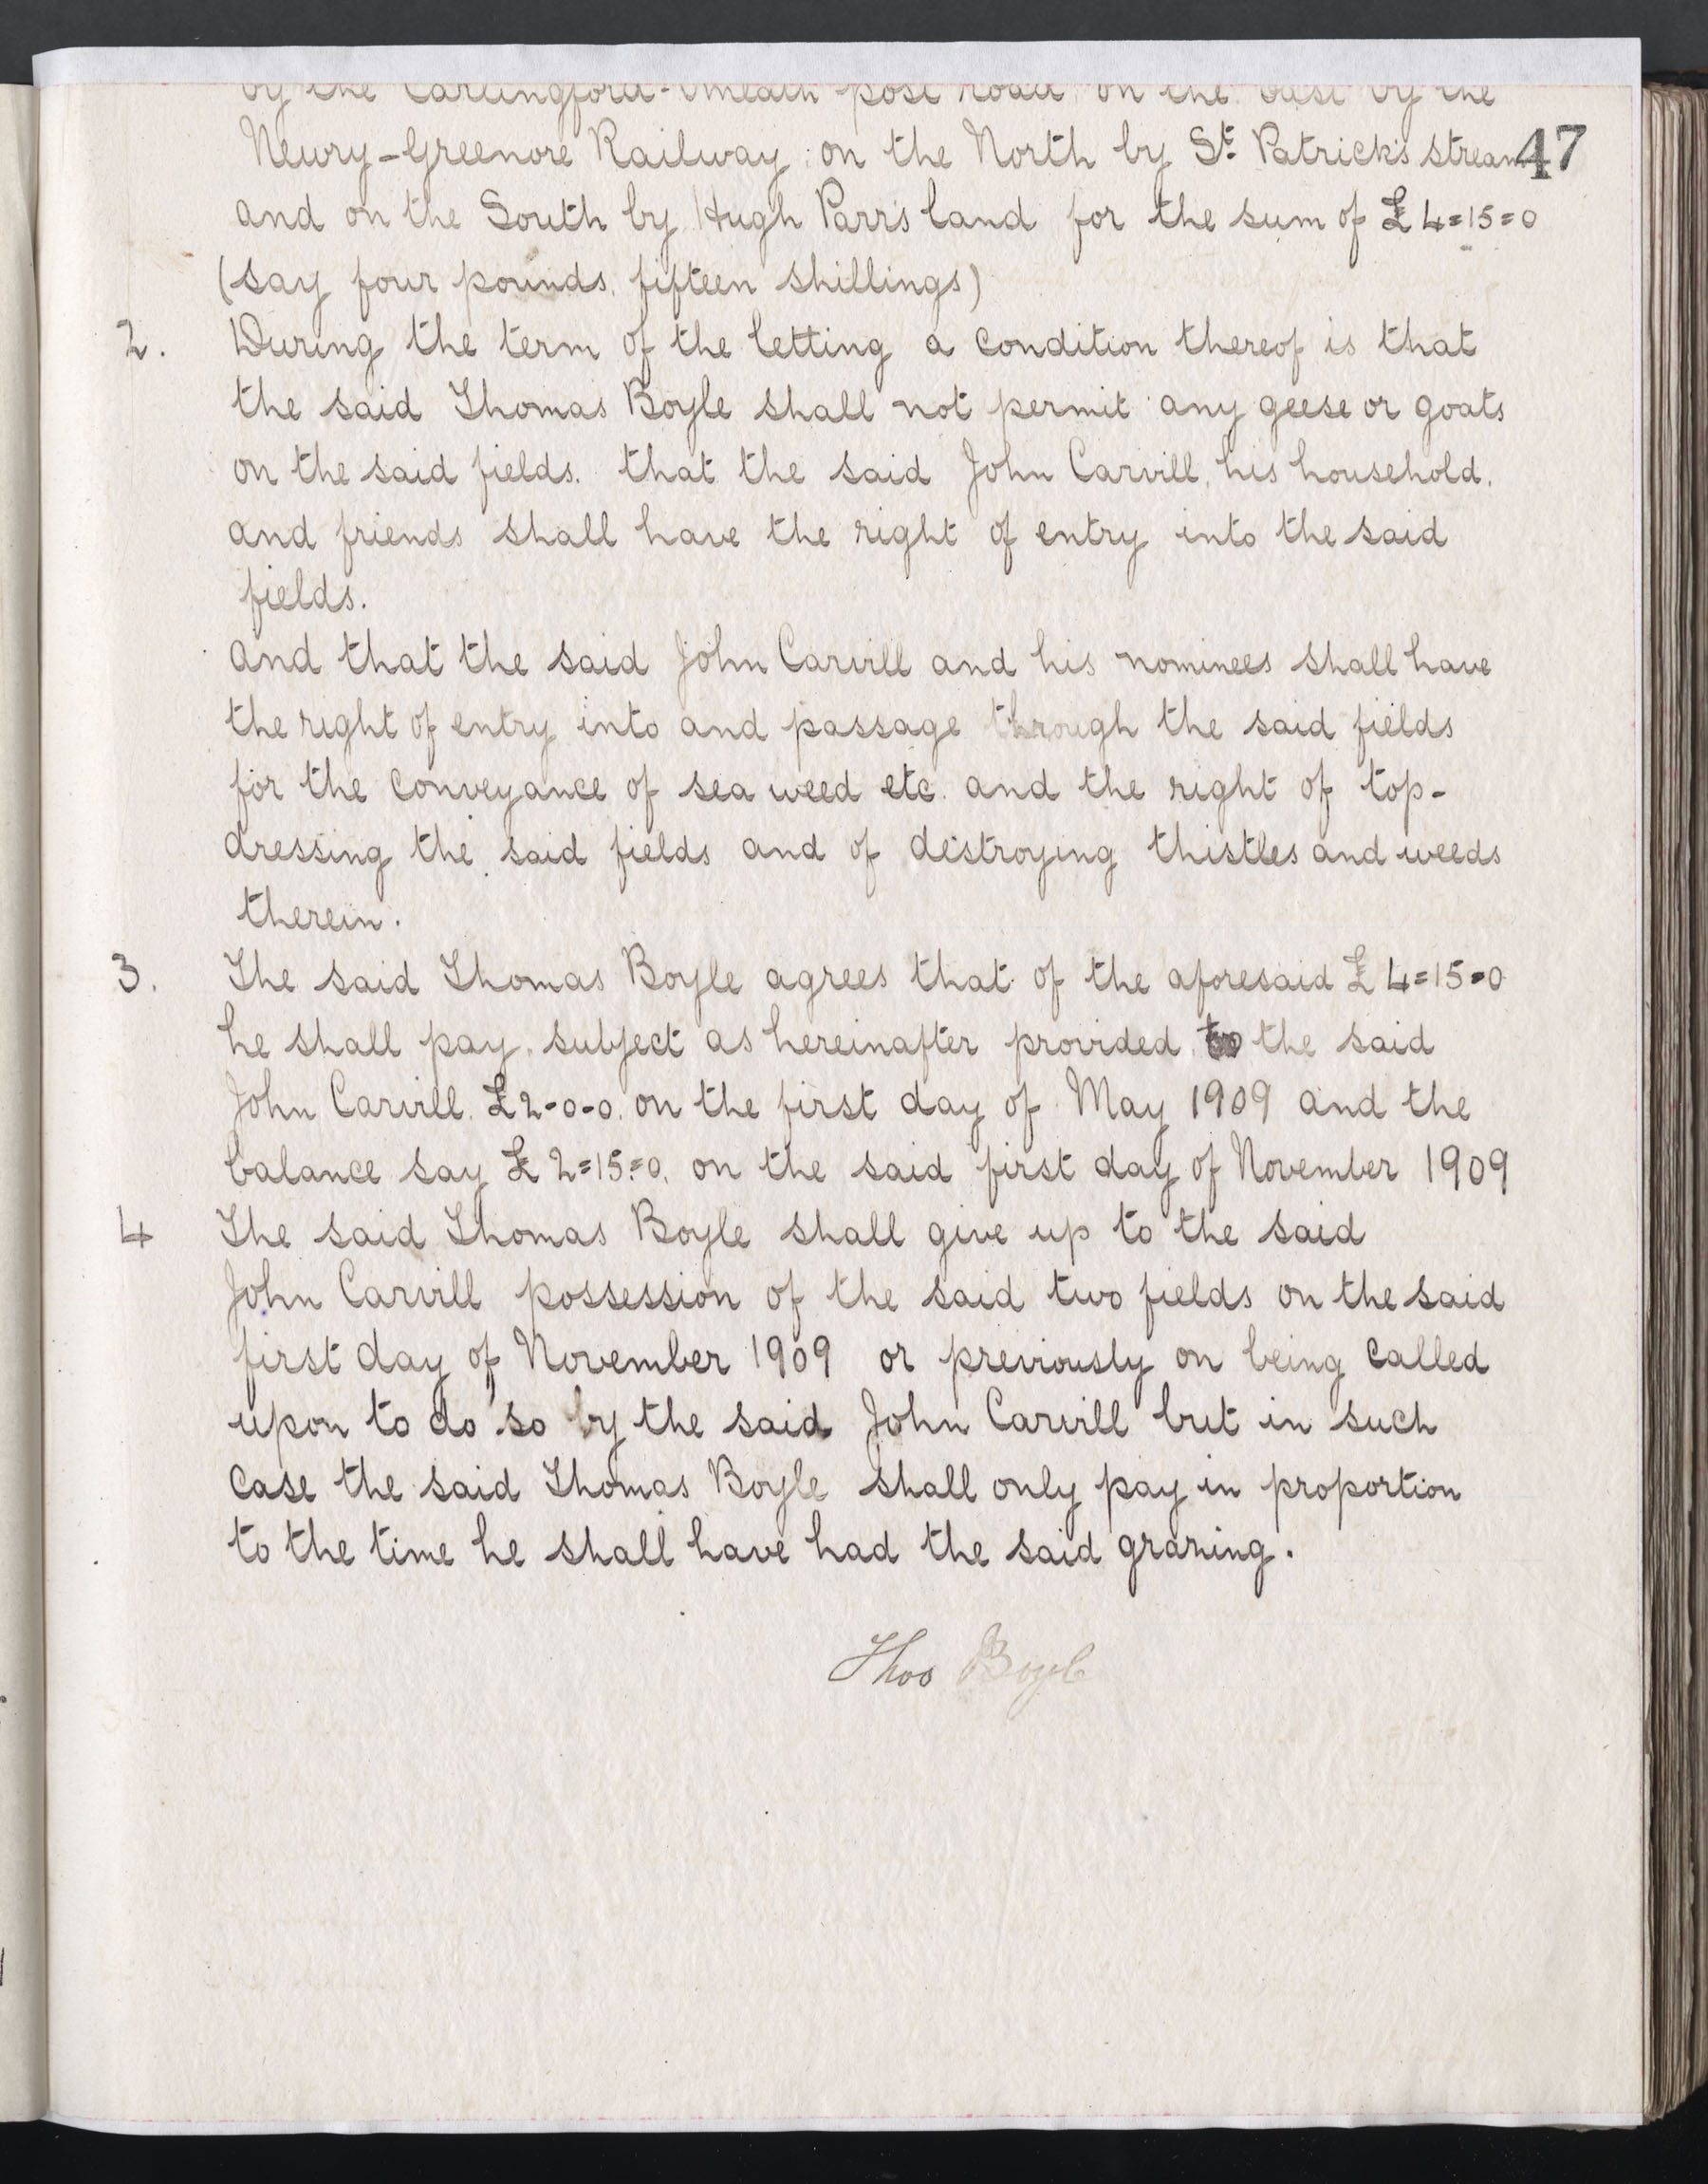 by the Carlingford-Omeath post road on the East by the
47
Newry-Greenore Railway: on the North by St. Patrick's stream
and on the South by Hugh Parr's land for the sum of £4=15=0
(say four pounds, fifteen shillings)
2. During the term of the letting a condition thereof is that
the said Thomas Boyle shall not permit any geese or goats
on the said fields. that the said John Carvill, his household,
and friends shall have the right of entry into the said
fields.
and that the said John Carvill and his nominees shall have
the right of entry into and passage through the said fields
for the conveyance of sea weed etc. and the right of top-
dressing the said fields and of destroying thistles and weeds
therein.
3. The said Thomas Boyle agrees that of the aforesaid £4=15=0
he shall pay, subject as hereinafter provided, to the said
John Carvill, £2-0-0, on the first day of May 1909 and the
balance say £2=15=0, on the said first day of November 1909
4 The said Thomas Boyle shall give up to the said
John Carvill possession of the said two fields on the said
first day of November 1909 or previously on being called
upon to do so by the said John Carvill but in such
case the said Thomas Boyle shall only pay in proportion
to the time he shall have had the said grazing.
Thos Boyle